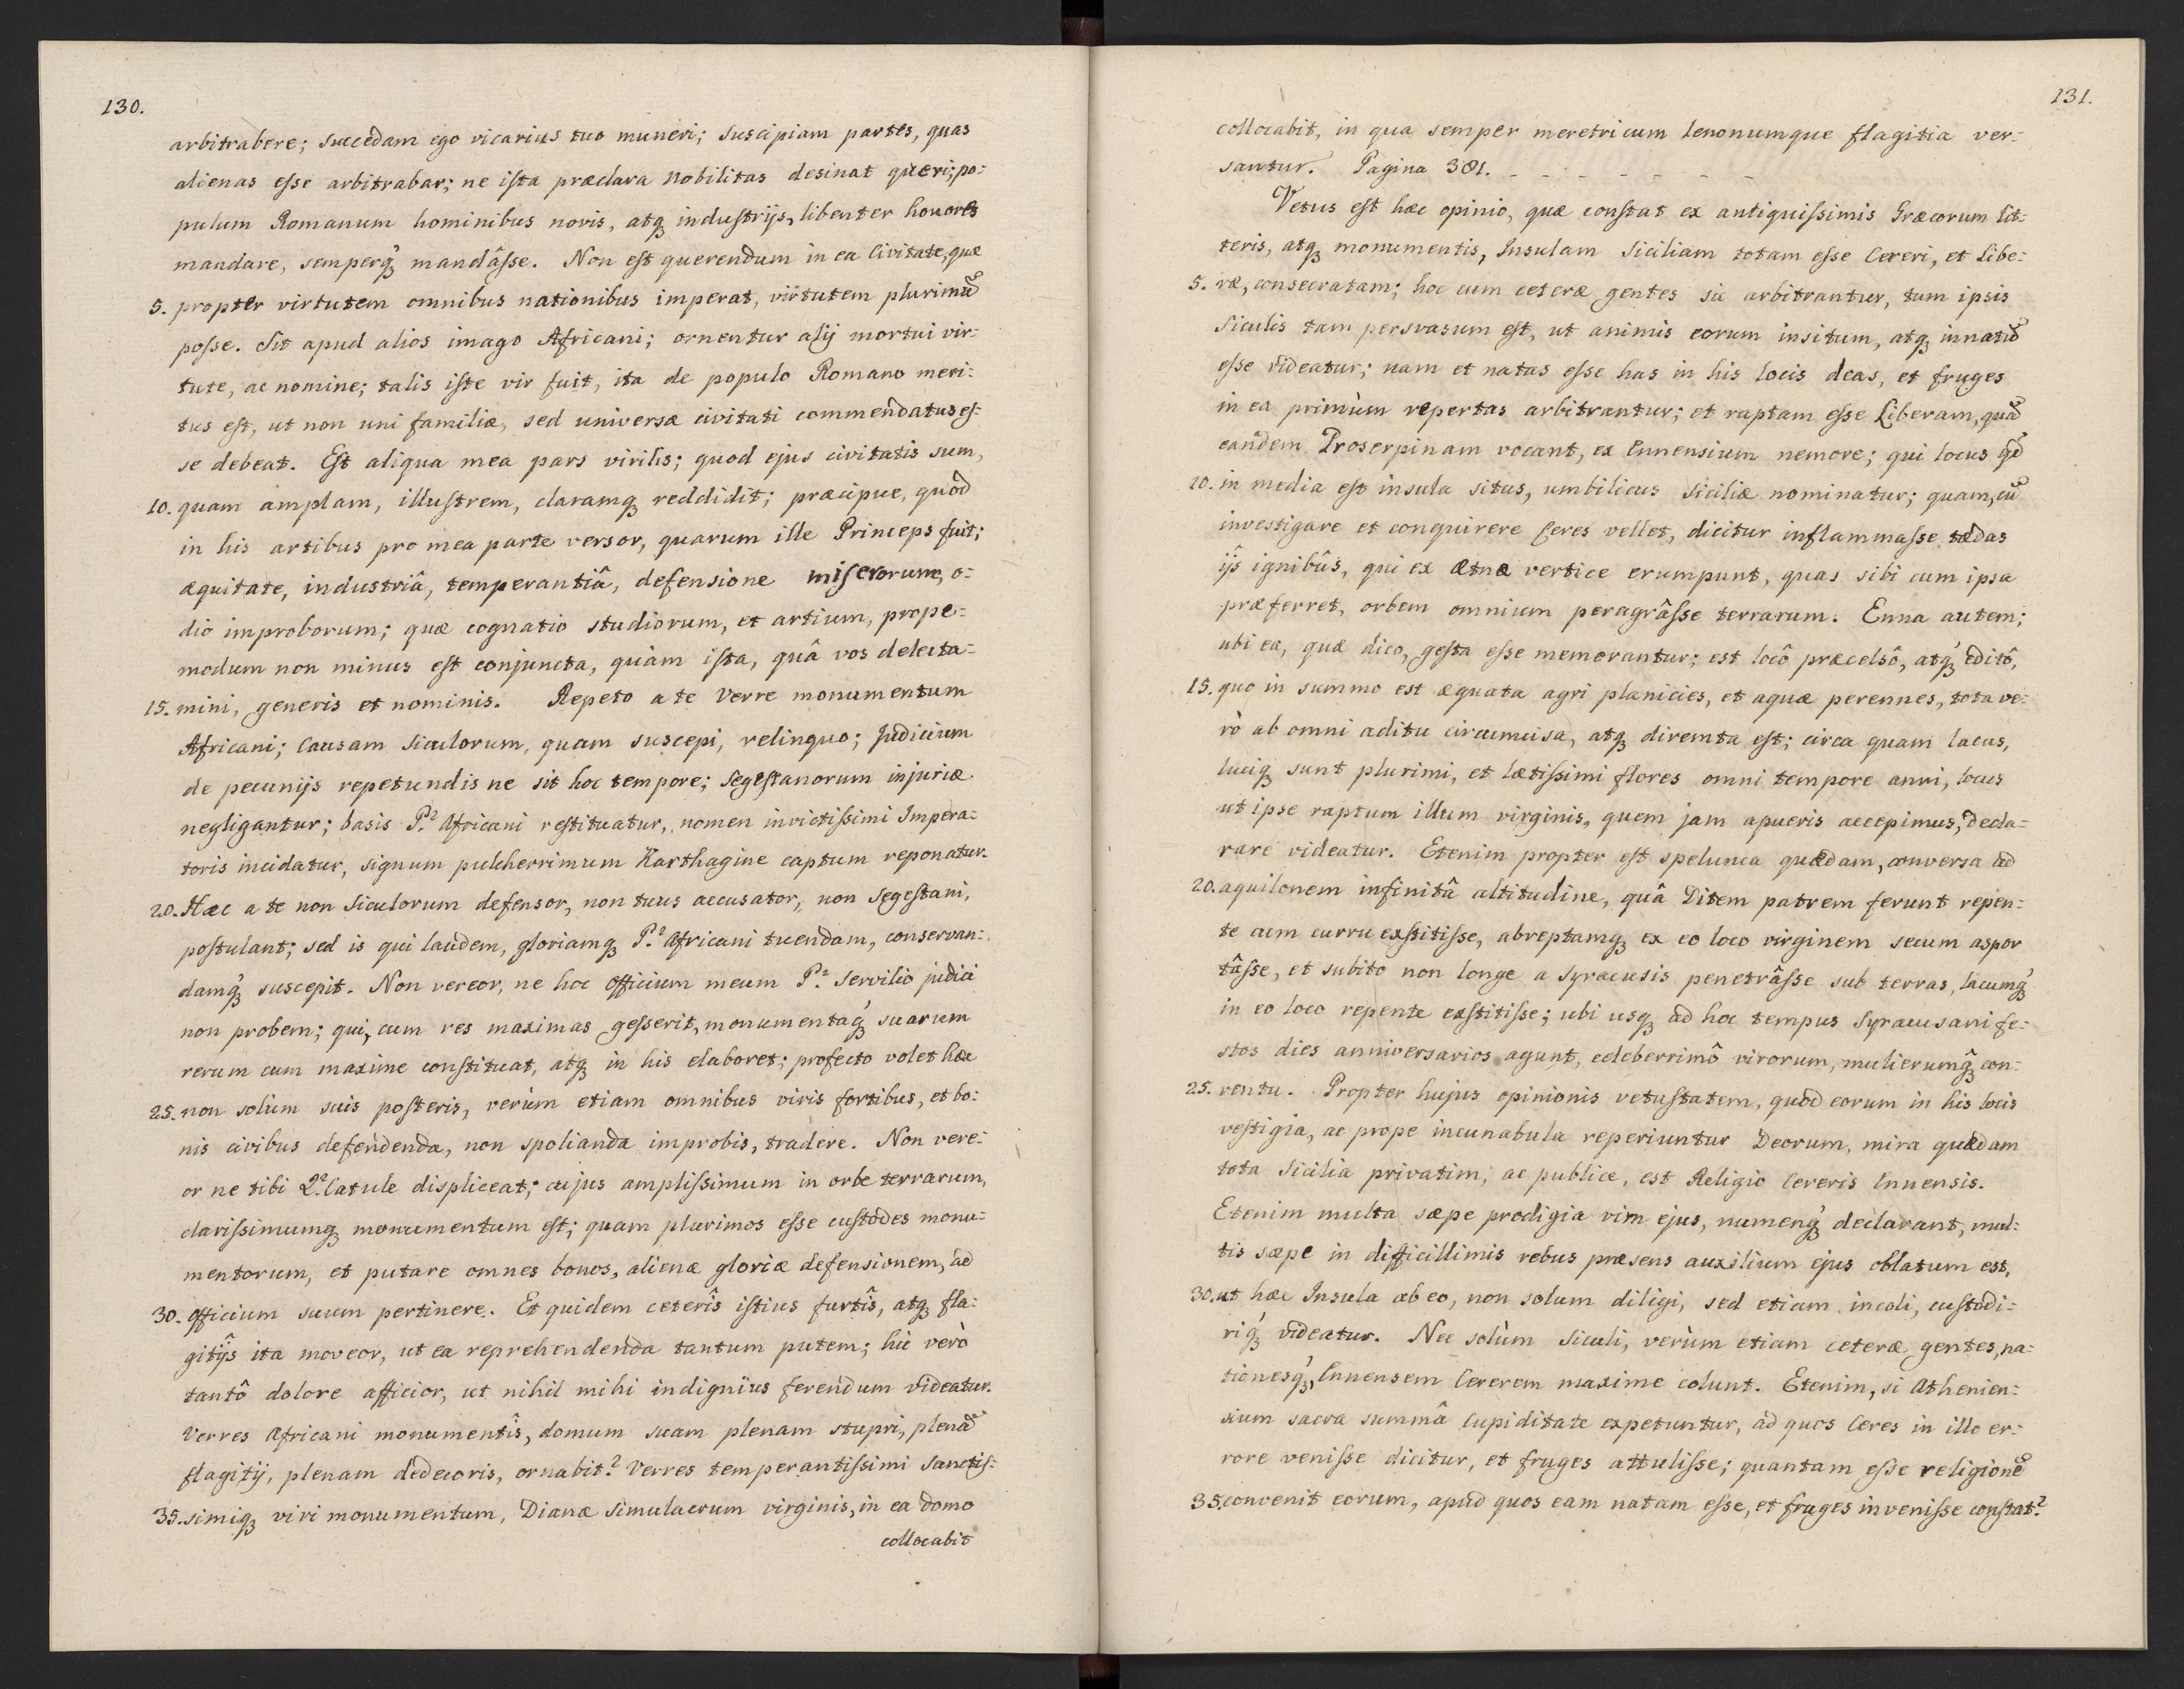 130.
arbitrabere; succedam ego vicarius tuo muneri; suscipiam partes, quas
alienas esse arbitrabar; ne ista præclara Nobilitas desinat queri; po:
pulum Romanum hominibus novis, atq; industrijs, libenter honores
mandare, semperq; mandâsse. Non est querendum in ea Civitate, quæ
5. propter virtutem omnibus nationibus imperat, virtutem plurimū
posse. Sit apud alios imago Africani; ornentur alij mortui vir:
tute, ac nomine; talis iste vir fuit, ita de populo Romano meri:
tus est, ut non uni familiæ, sed universæ civitati commendatus es:
se debeat. Est aliqua mea pars virilis; quod ejus civitatis sum,
10. quam amplam, illustrem, claramq; reddidit; præcipue, quòd
in his artibus pro mea parte versor, quarum ille Princeps fuit;
æquitate, industriâ, temperantiâ, defensione miserorum, o:
dio improborum; quæ cognatio studiorum, et artium, prope:
modum non minus est conjuncta, quàm ista, quâ vos delecta:
15. mini, generis et nominis. Repeto a te Verre monumentum
Africani; Causam Siculorum, quam suscepi, relinquo; Judicium
de pecunijs repetundis ne sit hoc tempore; Segestanorum injuriæ
negligantur; basis P. Africani restituatur, nomen invictissimi Impera:
toris incidatur, signum pulcherrimum Karthagine captum reponatur.
20. Hæc a te non Siculorum defensor, non tuus accusator, non Segestani,
postulant; sed is qui laudem, gloriamq; P. Africani tuendam, conservan:
damq; suscepit. Non vereor, ne hoc officium meum P. Servilio judici
non probem; qui, cum res maximas gesserit, monumentaq; suarum
rerum cum maxime constituat, atq; in his elaboret; profecto volet hæc
25. non solùm suis posteris, verùm etiam omnibus viris fortibus, et bo:
nis civibus defendenda, non spolianda improbis, tradere. Non vere:
or ne tibi Q. Catule displiceat; cujus amplissimum in orbe terrarum,
clarissimumq; monumentum est; quam plurimos esse custodes monu:
mentorum, et putare omnes bonos, alienæ gloriæ defensionem, ad
30. officium suum pertinere. Et quidem ceterîs istius furtîs, atq; fla:
gitijs ita moveor, ut ea reprehendenda tantum putem; hic verò
tantô dolore afficior, ut nihil mihi indigniùs ferendum videatur.
Verres Africani monumentîs, domum suam plenam stupri, plenā
flagitij, plenam dedecoris, ornabit? Verres temperantissimi Sanctis:
35. simiq; viri monumentum, Dianæ simulacrum virginis, in ea domo
collocabit
131.
collocabit, in qua semper meretricum lenonumque flagitia ver:
santur. Pagina 381. - - - - - - - -
Vetus est hæc opinio, quæ constat ex antiquissimis Græcorum lit:
teris, atq; monumentis, Insulam Siciliam totam esse Cereri, et Libe:
5. ræ, consecratam; hoc cum ceteræ gentes sic arbitrantur, tum ipsis
Siculis tam persvasum est, ut animis eorum insitum, atq; innatū
esse videatur; nam et natas esse has in his locis deas, et fruges
in ea primùm repertas arbitrantur; et raptam esse Liberam, quā
eandem Proserpinam vocant, ex Ennensium nemore; qui locus qđ
10. in media est insula situs, umbilicus Siciliæ nominatur; quam, cū
investigare et conquirere Ceres vellet, dicitur inflammasse tædas
ijs ignibûs, qui ex Ætnæ vertice erumpunt, quas sibi cum ipsa
præferret, orbem omnium peragrâsse terrarum. Enna autem;
ubi ea, quæ dico, gesta esse memorantur; est locô præcelsô, atq; editô,
15. quo in summo est æquata agri planicies, et aquæ perennes, tota ve:
rò ab omni aditu circumcisa, atq; diremta est; circa quam lacus,
luciq; sunt plurimi, et lætissimi flores omni tempore anni, locus
ut ipse raptum illum virginis, quem jam a pueris accepimus, decla:
rare videatur. Etenim propter est spelunca quædam, conversa ad
20. aquilonem infinitâ altitudine, quâ Ditem patrem ferunt repen:
te cum curru exstitisse, abreptamq; ex eo loco virginem secum aspor
tâsse, et subito non longe a Syracusis penetrâsse sub terras, lacumq;
in eo loco repente exstitisse; ubi usq; ad hoc tempus Syracusani fe:
stos dies anniversarios agunt, celeberrimô virorum, mulierumq; con:
25. ventu. Propter hujus opinionis vetustatem, quòd eorum in his locis
vestigia, ac prope incunabula reperiuntur Deorum, mira quædam
tota Sicilia privatim, ac publice, est Religio Cereris Ennensis.
Etenim multa sæpe prodigia vim ejus, numenq; declarant, mul:
tis sæpe in difficillimis rebus præsens auxilium ejus oblatum est,
30. ut hæc Insula ab eo, non solum diligi, sed etiam incoli, custodi:
riq; videatur. Nec solùm Siculi, verùm etiam ceteræ gentes, na:
tionesq;, Ennensem Cererem maxime colunt. Etenim, si Athenien:
sium sacra summâ cupiditate expetuntur, ad quos Ceres in illo er:
rore venisse dicitur, et fruges attulisse; quantam esse religionē
35. convenit eorum, apud quos eam natam esse, et fruges invenisse constat?